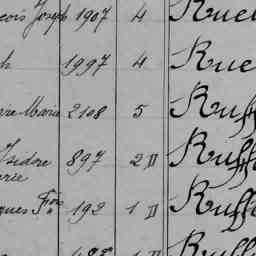 çois Joseph 1907 4 Ruel
h 1997 4 Rue
rre Marie 2108 5 Ruff
Isidore 897 2 D Ruff
rie
ques Fçois 192 1 D Ruff